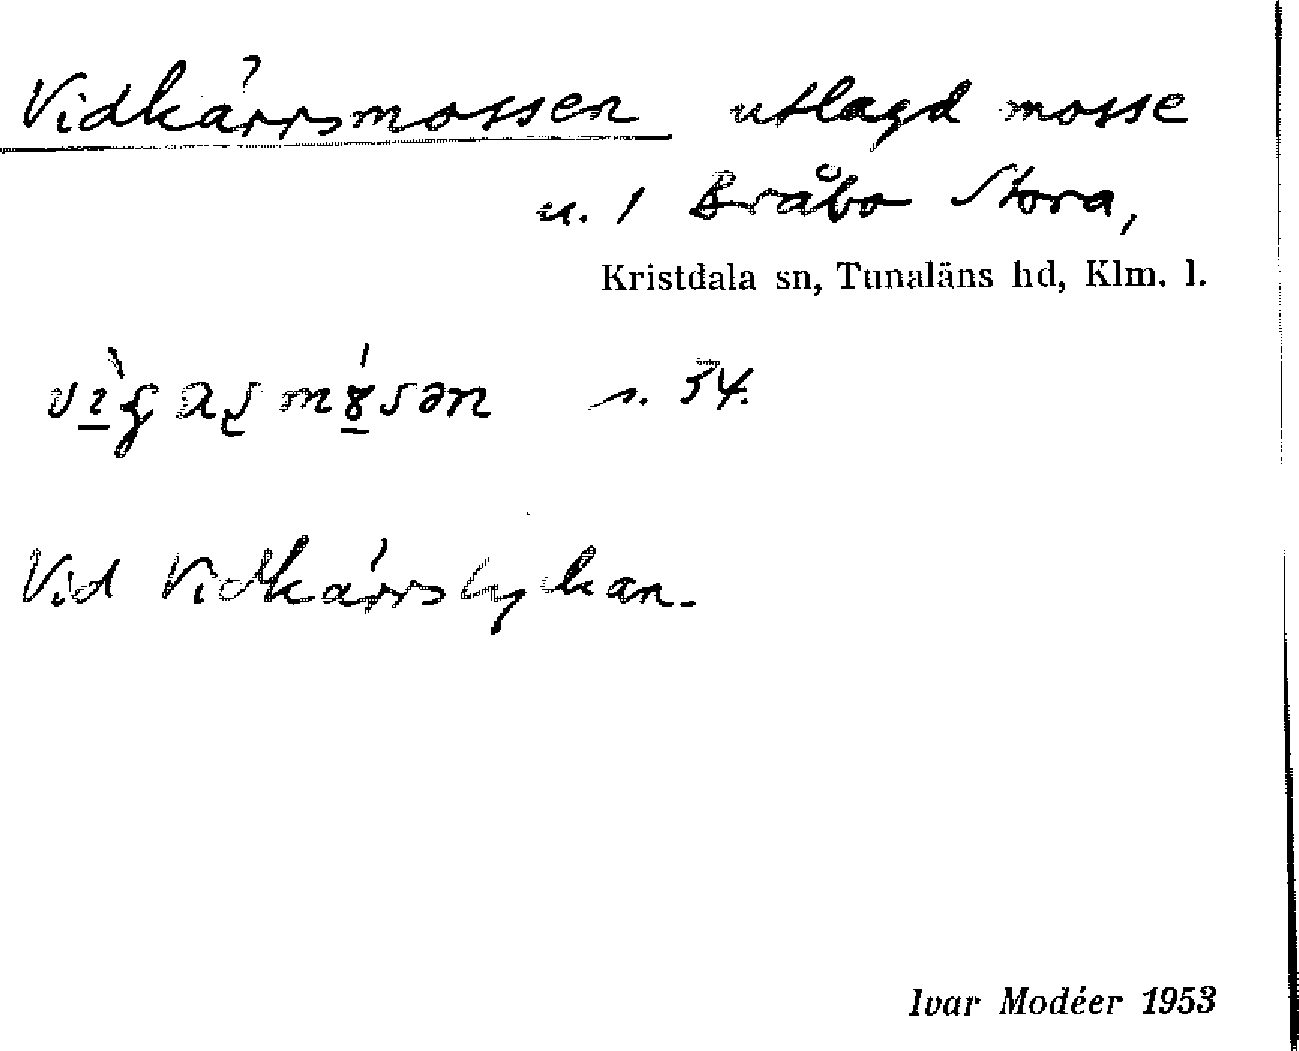 Vidkärrsmossen utlagd mosse
u. 1 Bråbo Stora,
Kristdala sn, Tunaläns hd, Klm. l.
s. 54.
Vid Vidkärrslyckan.
Ivar Modéer 1953